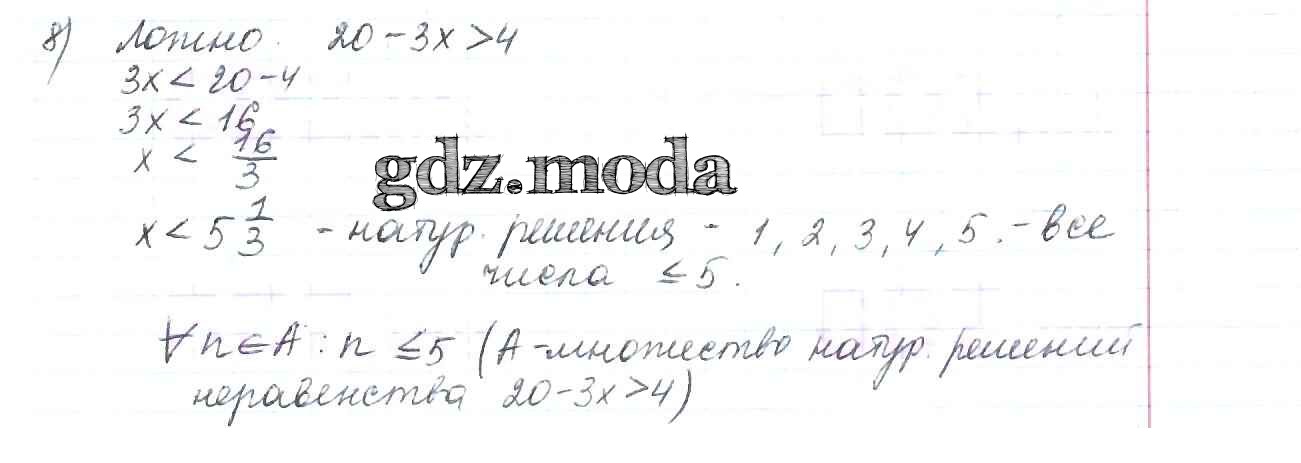 8) Ложно. 20-3x>4
3x<20-4
3x<16
x < 16/3
gdz.moda
x<5 1/3 - натур. решения - 1, 2, 3, 4, 5. - все
числа ≤5.
∀n∈A : n ≤5 (A-множество натур. решений
неравенства 20-3x>4)